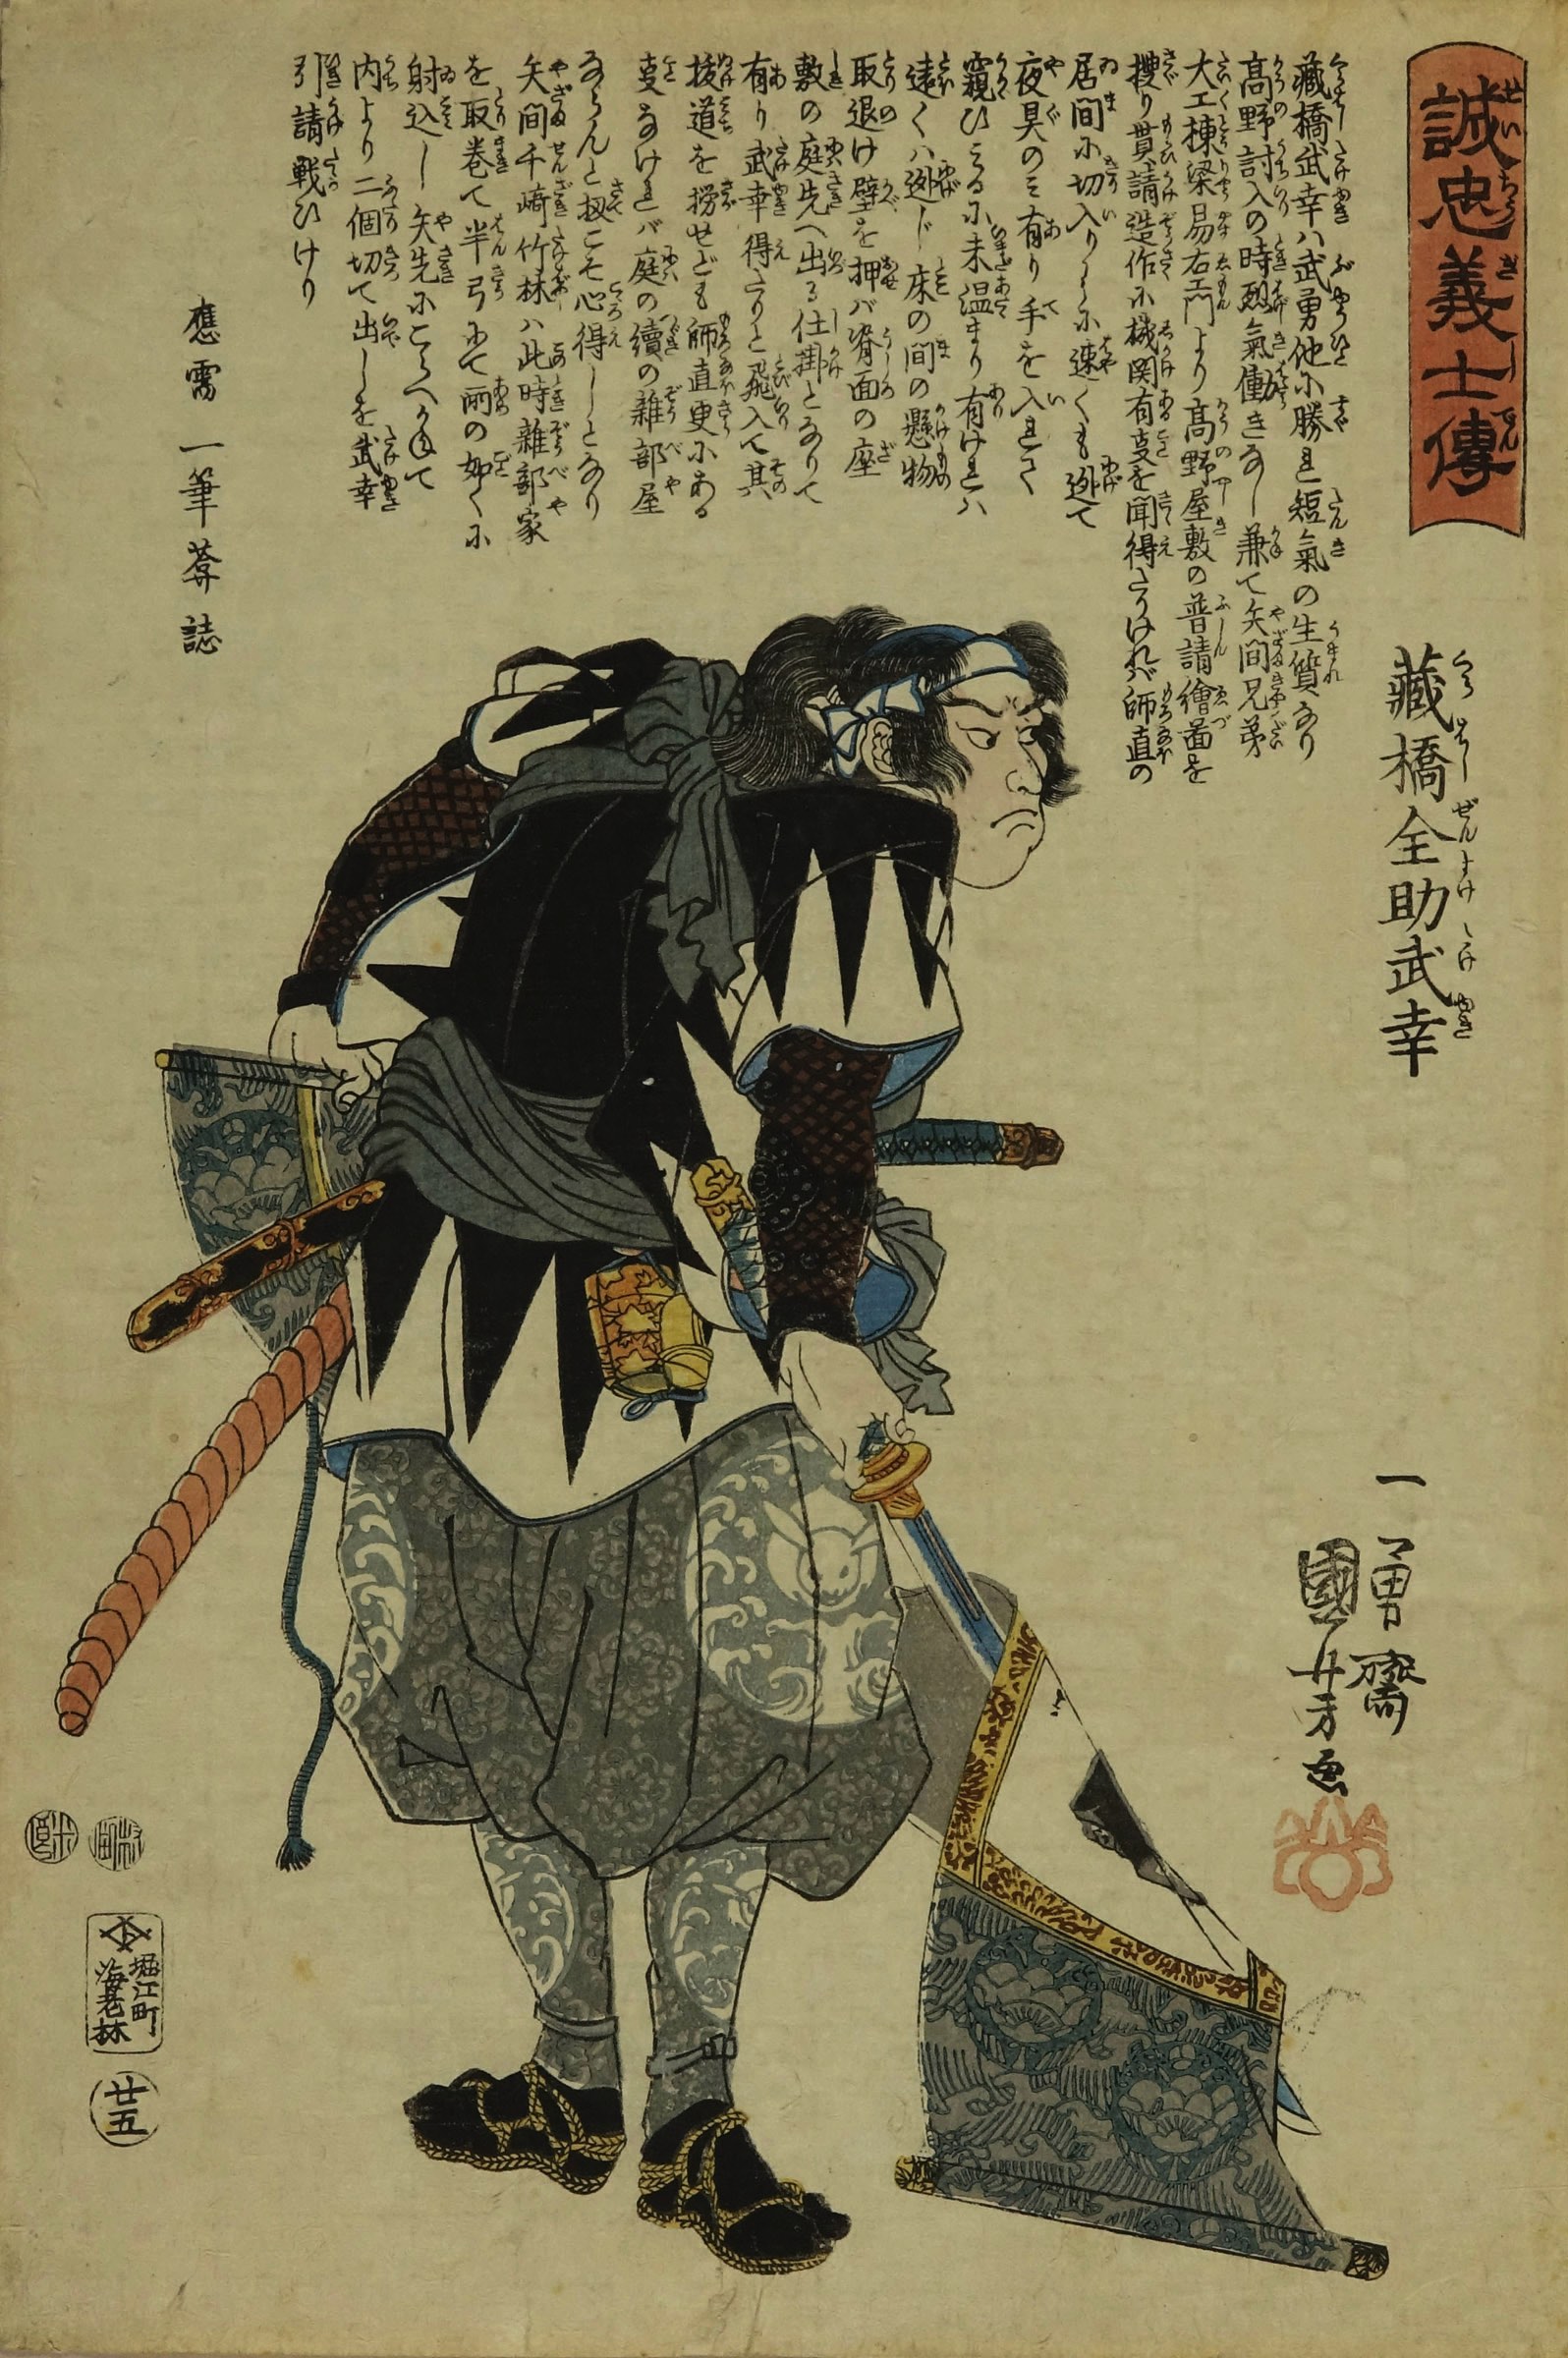 誠忠義士傳
藏橋全助武幸
藏橋武幸ハ武勇他に勝れ短氣の生質なり
高野討入の時烈氣働きなし兼て矢間兄弟
大工棟梁易右エ門より高野屋敷の普請繪圖を
捜り貰請造作に機関有㕝を聞得たりけれバ師直の
居間に切入りしに速くも迯て
夜具のミ有り手を入れて
窺ひみるに未温まり有けれハ
遠くハ迯じ床の間の懸物
取退け壁を押バ脊面の座
敷の庭先へ出る仕掛となりて
有り武幸得たりと飛入て其
抜道を撈せども師直更にある
㕝なけれバ庭の續の雑部屋
ならんと扨こそ心得しとなり
矢間千﨑竹林ハ此時雑部家
を取巻て半弓にて雨の如くに
射込し矢先にこらへかねて
内より二個切て出しを武幸
引請戦ひけり
應需 一筆菴誌
一勇齋
國芳画
堀江町
海老林
廿五